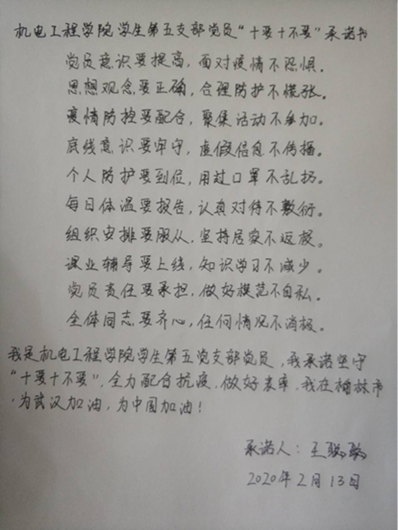 机电工程学院学生第五支部党员“十要十不要”承诺书
党员意识要提高，面对疫情不恐惧。
思想观念要正确，合理防护不慌张。
疫情防控要配合，聚集活动不参加。
底线意识要牢守，虚假信息不传播。
个人防护要到位，用过口罩不乱扔。
每日体温要报告，认真对待不敷衍。
组织安排要服从，坚持居家不返校。
课业辅导要上线，知识学习不减少。
党员责任要承担，做好模范不自私。
全体同志要齐心，任何情况不消极。
我是机电工程学院学生第五党支部党员，我承诺坚守
“十要十不要”，全力配合抗疫，做好表率，我在榆林市
，为武汉加油，为中国加油！
承诺人：王
2020年2月13日